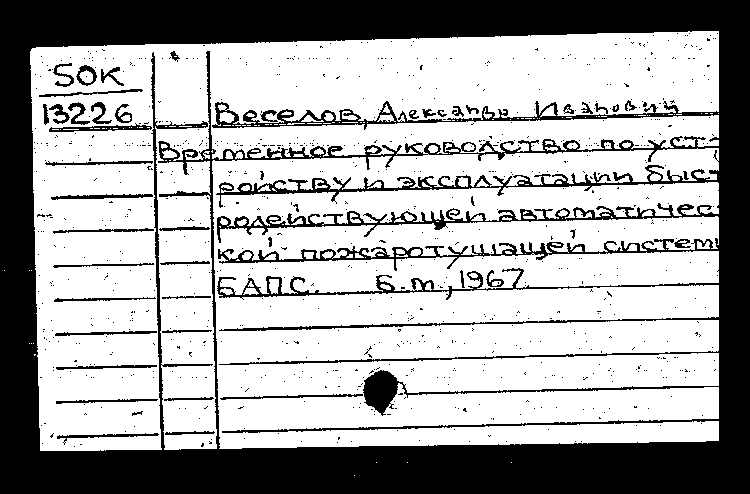 50К
13226
Веселов, Александр Иванович
Временное руководство по уст-
ройству и эксплуатации быст
родействующей автоматичес
кой пожаротушащей систем
БАПС. Б.т., 1967